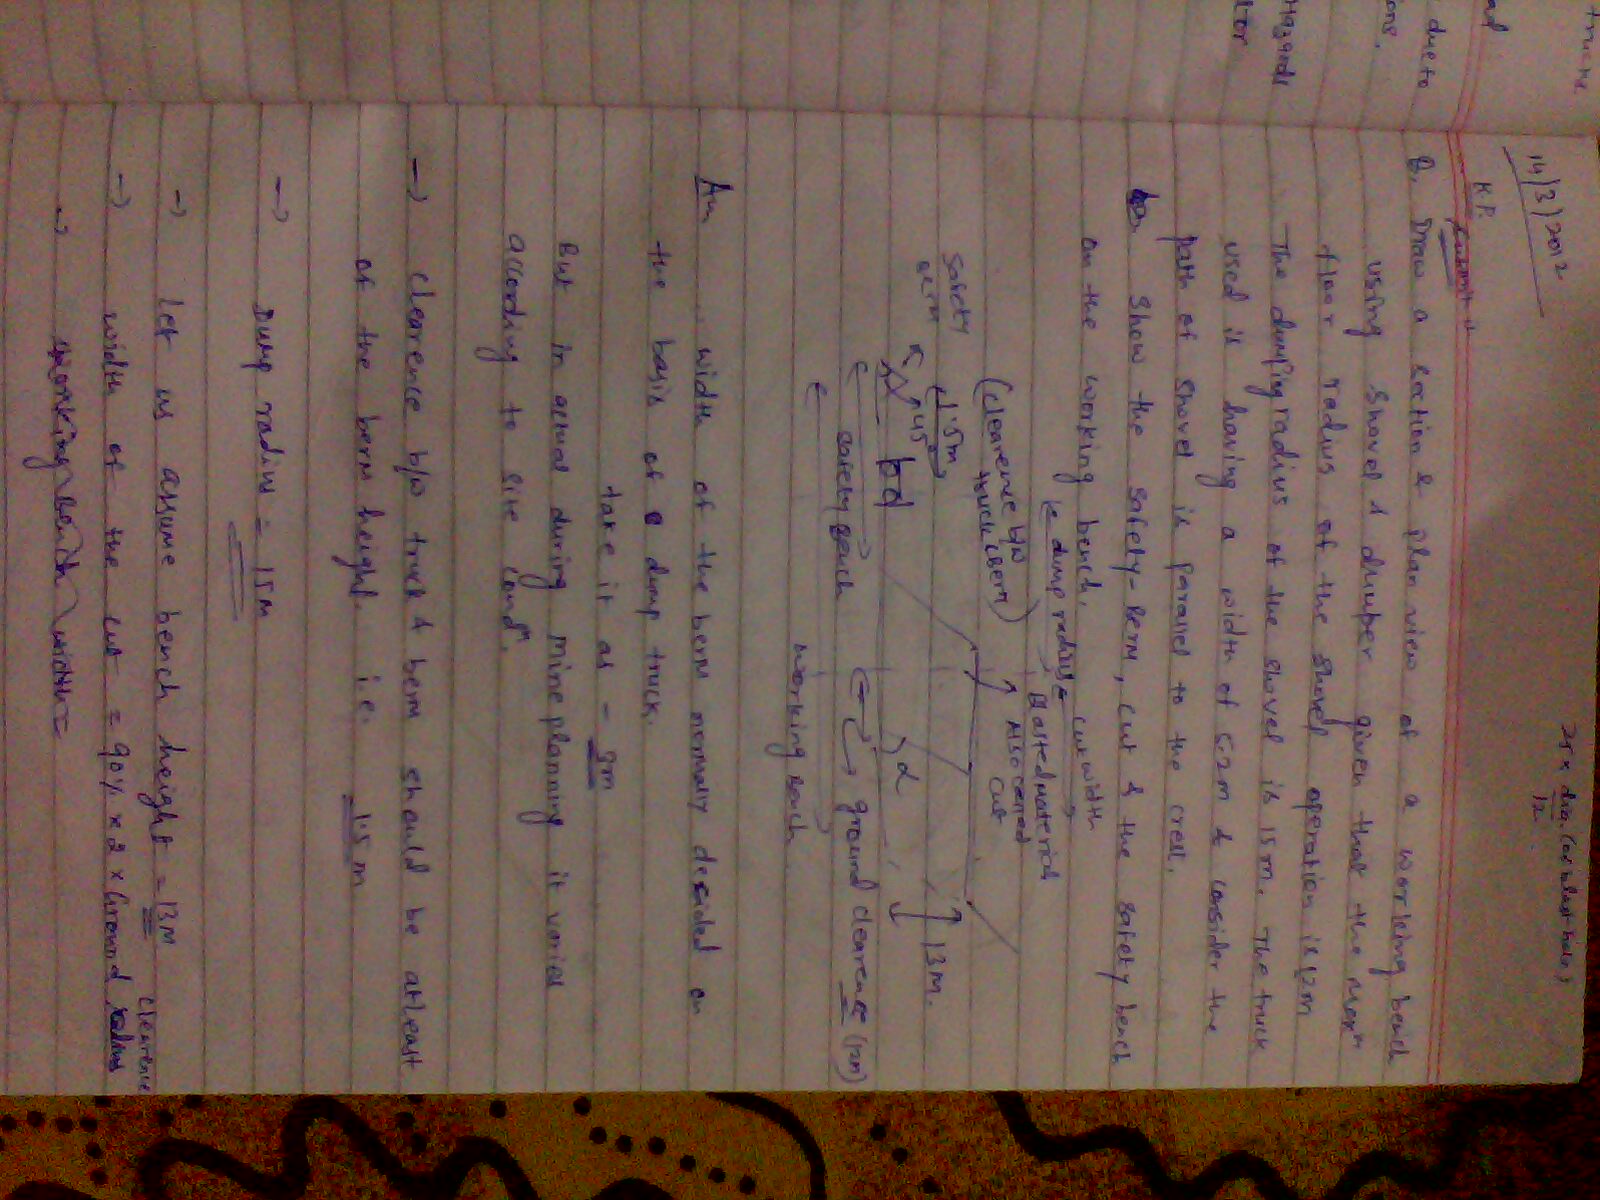 14/3/2012
25 x dia. (of blast hole)
12
H.P.
Q. Draw a section & plan view of a working bench
using shovel & dumper given that the maxm
floor radius of the shovel operation is 12m
The dumping radius of the shovel is 15 m. The truck
used is having a width of 5.2m & consider the
path of shovel is parallel to the crest.
Show the safety-berm, cut & the safety bench
on the working bench.
cut width
dump radius
Blasted material
Also called
cut
(clearence b/w
truck & berm)
Safety
berm
1.5m
45
13m.
bd
α
safety bench
ground clearence (12m)
working bench
An width of the berm normally decided on
the basis of dump truck.
take it as - 3m
But in actual during mine planning it varies
according to site condn.
→ clearence b/w truck & berm should be atleast
of the berm height. i.e. 1.5 m
→ Dump radius = 15m
→ let us assume bench height = 13m
→ width of the cut = 90% x 2 x Ground clearence radius
→ working bench width =
true
ad
due to
ons.
Hazards
tor